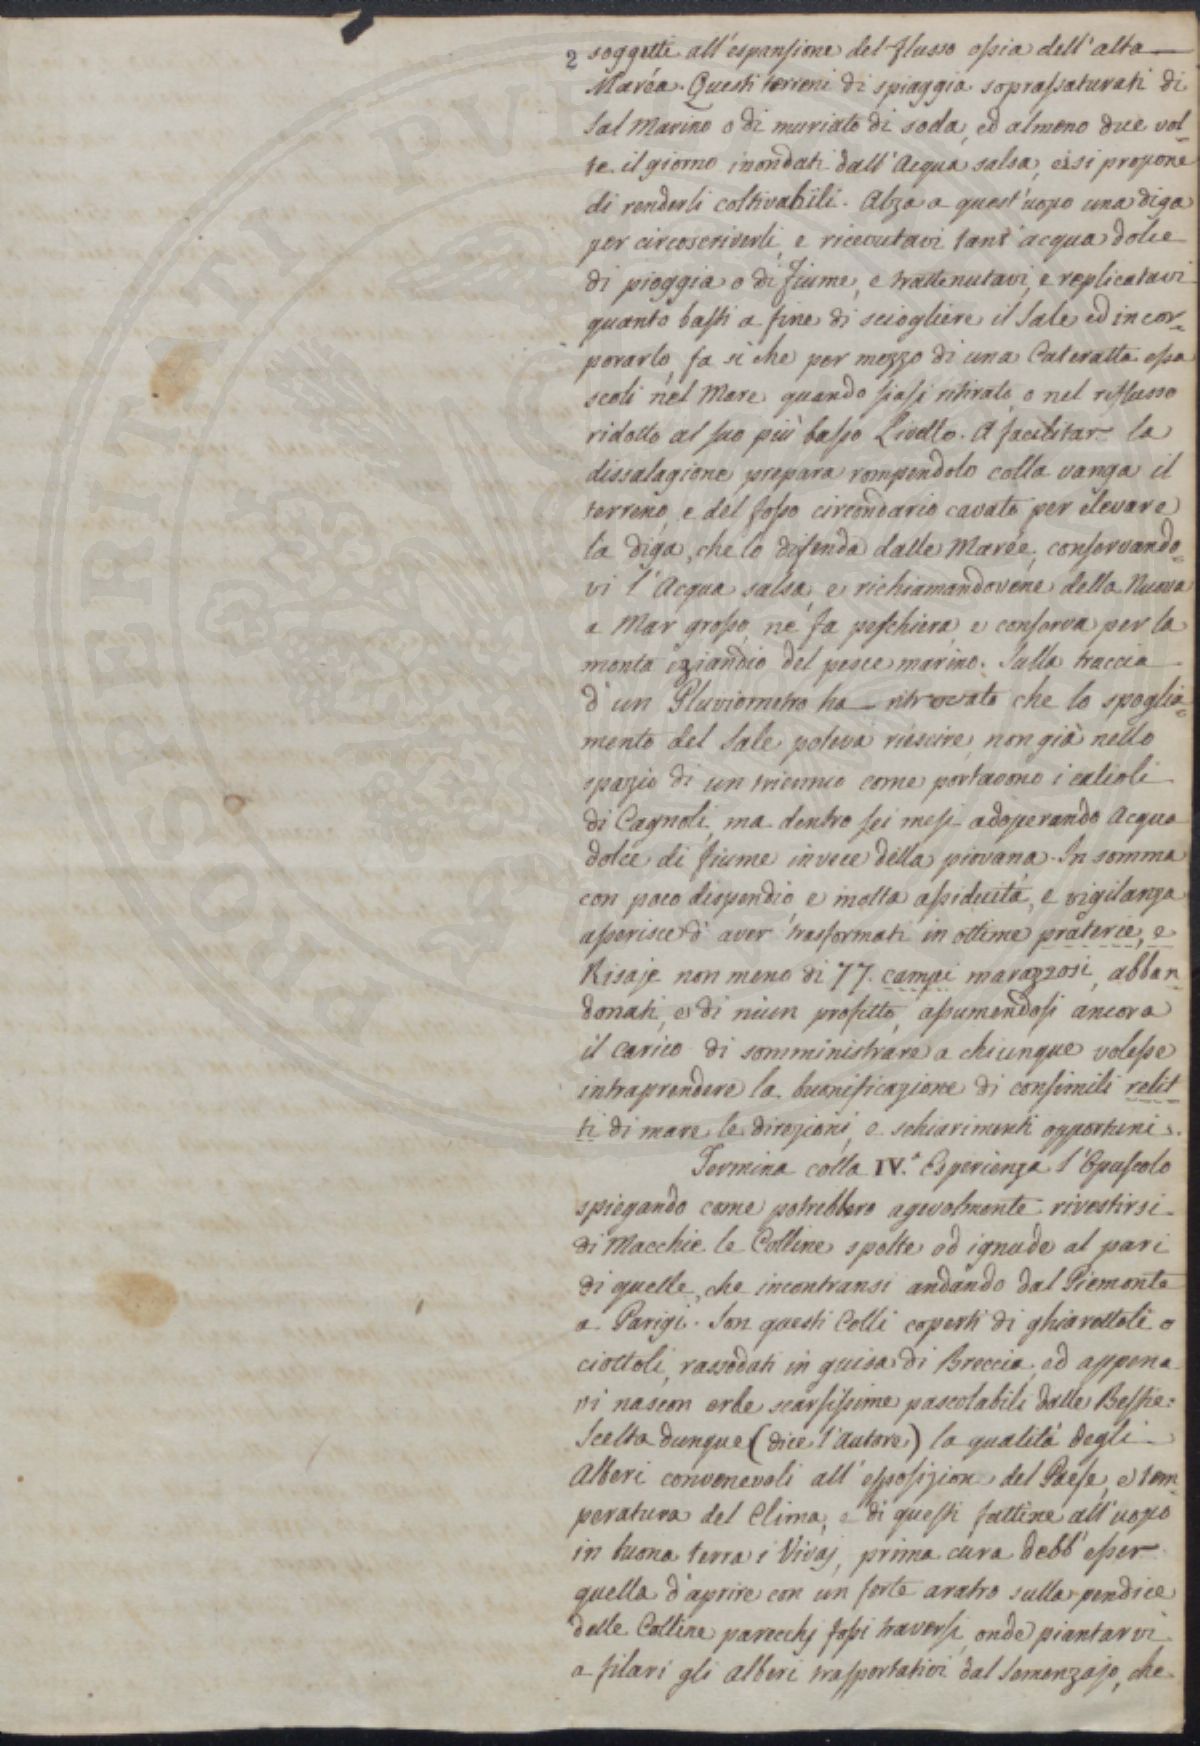 2 soggetti all'espansione del Flusso ossia dell'alta
Maréa. Questi terreni di spiaggia soprassaturati di
Sal Marino o di muriato di soda, ed almeno due vol-
te il giorno inondati dall'Acqua salsa, ei si propone
di renderli coltivabili. Alza a quest'uopo una diga
per circoscriverli, e ricevutavi tant'acqua dolce
di pioggia o di fiume, e trattenutavi, e replicatavi
quanto basti a fine di sciogliere il Sale ed incor-
porarlo, fa sì che per mezzo di una Cateratta essa
scoli nel Mare quando siasi ritirato, o nel riflusso
ridotto al suo più basso Livello. A facilitar la
dissalagione prepara rompendolo colla vanga il
terreno, e del fosso circondario cavato per elevare
la diga, che lo difenda dalle Marée, conservando-
vi l'Acqua salsa, e richiamandovene della Nuova
a Mar grosso, ne fa peschiera, e conserva per la
monta iziandio del pesce marino. Sulla traccia
d'un Pluviometro ha ritrovato che lo spoglia-
mento del Sale poteva riescire, non già nello
spazio di un triennio come portavono i calcoli
di Cagnoli, ma dentro sei mesi adoperando Acqua
dolce di fiume invece della piovana. In somma
con poco dispendio, e molta assiduità, e vigilanza
asserisce d'aver trasformati in ottime praterie, e
Risaje non meno di 77. campi marazzosi, abban
donati, e di niun profitto, assumendosi ancora
il carico di somministrare a chiunque volesse
intraprendere la buonificazione di consimili relit
ti di mare le direzioni, e schiarimenti opportuni.
Termina colla IV.a Esperienza l'Opuscolo
spiegando come potrebbero agevolmente rivestirsi
di Macchie le Colline spolte ed ignude al pari
di quelle, che incontransi andando dal Piemonte
a Parigi. Son questi Colli coperti di ghiarottoli o
ciottoli, rassodati in guisa di Breccia, ed appena
vi nascon erbe scarsissime pascolabili dalle Bestie:
Scelta dunque (dice l'Autore) la qualità degli
Alberi convenevoli all'esposizion del Paese, e tem-
peratura del Clima, e di questi fattine all'uopo
in buona terra i Vivaj, prima cura debb'esser
quella d'aprire con un forte aratro sulla pendice
delle Colline parecchj fossi traversi, onde piantarvi
a filari gli Alberi trasportativi dal Semenzajo, che